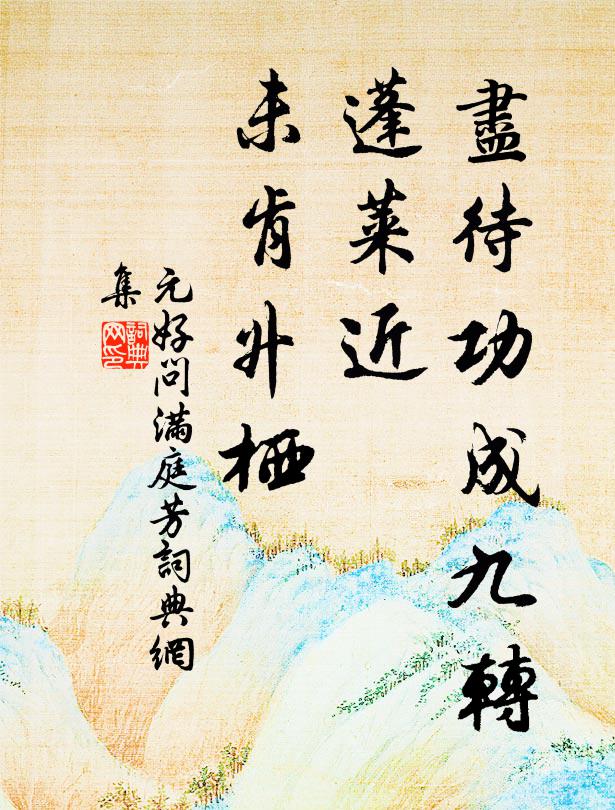 盡待功成九轉
蓬萊近
未肯廾栖
元好问滿庭芳詞典網
集
詞典
网印